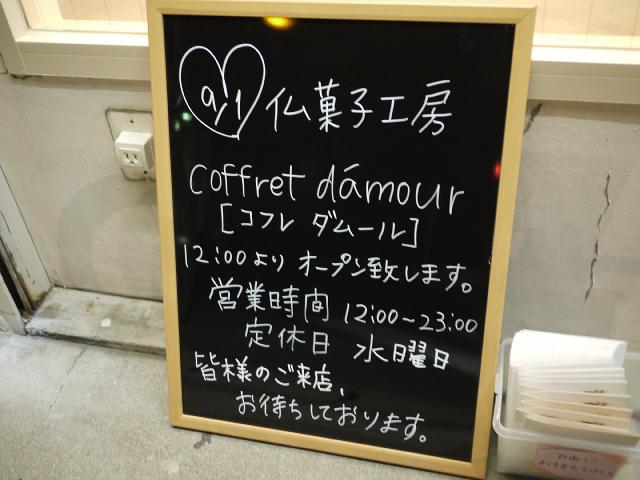 9/1 仏菓子工房
coffret dámour
[コフレ ダムール]
12:00より オープン致します。
営業時間 12:00~23:00
定休日 水曜日
皆様のご来店、
お待ちしております。